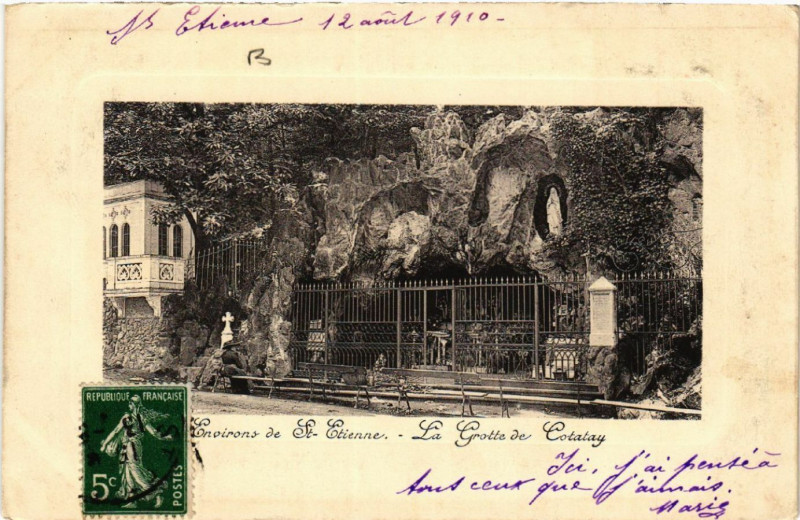 St Etienne 12 août 1910 -
B
REPUBLIQUE FRANÇAISE
5c
POSTES
Environs de St-Etienne. - La Grotte de Cotatay
Ici, j'ai pensé à
tous ceux que j'aimais.
Marie